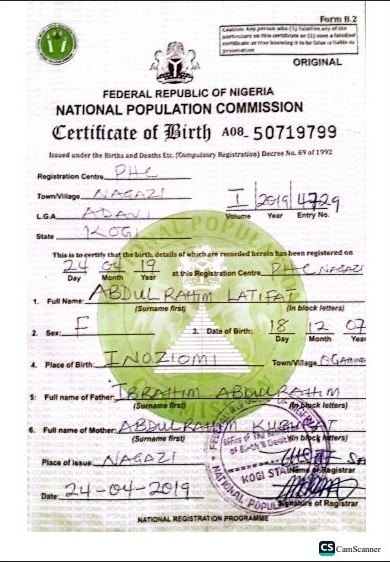 Form B.2
Caution: Any person who (1) falsifies any of the
particulars on this certificate or (2) uses a falsified
certificate as true knowing it to be false is liable to
prosecution
ORIGINAL
FEDERAL REPUBLIC OF NIGERIA
NATIONAL POPULATION COMMISSION
Certificate of Birth A08_ 50719799
Issued under the Births and Deaths Etc. (Compulsory Registration) Decree No. 69 of 1992
Registration Centre PHC
Town/Village NAGAZI
I 2019 4729
L.G.A ADAVI
Volume Year Entry No.
State KOGI
This is to certify that the birth, details of which are recorded herein has been registered on
24 04 19 at this Registration Centre PHC NAGAZI
Day Month Year
1. Full Name: ABDULRAHIM LATIFAT
(Surname first) (In block letters)
2. Sex: F 3. Date of Birth: 18 12 07
Day Month Year
4. Place of Birth: INOZIOMI Town/Village
5: Full name of Father: IBRAHIM ABDULRAHIM
(Surname first) (In block letters)
6. Full name of Mother: ABDULRAHIM
(Surname first) (In block letters)
Place of issue: NAGAZI
Name of Registrar
KOGI STATE
Date: 24-04-2019
Signature of Registrar
NATIONAL REGISTRATION PROGRAMME
CS CamScanner